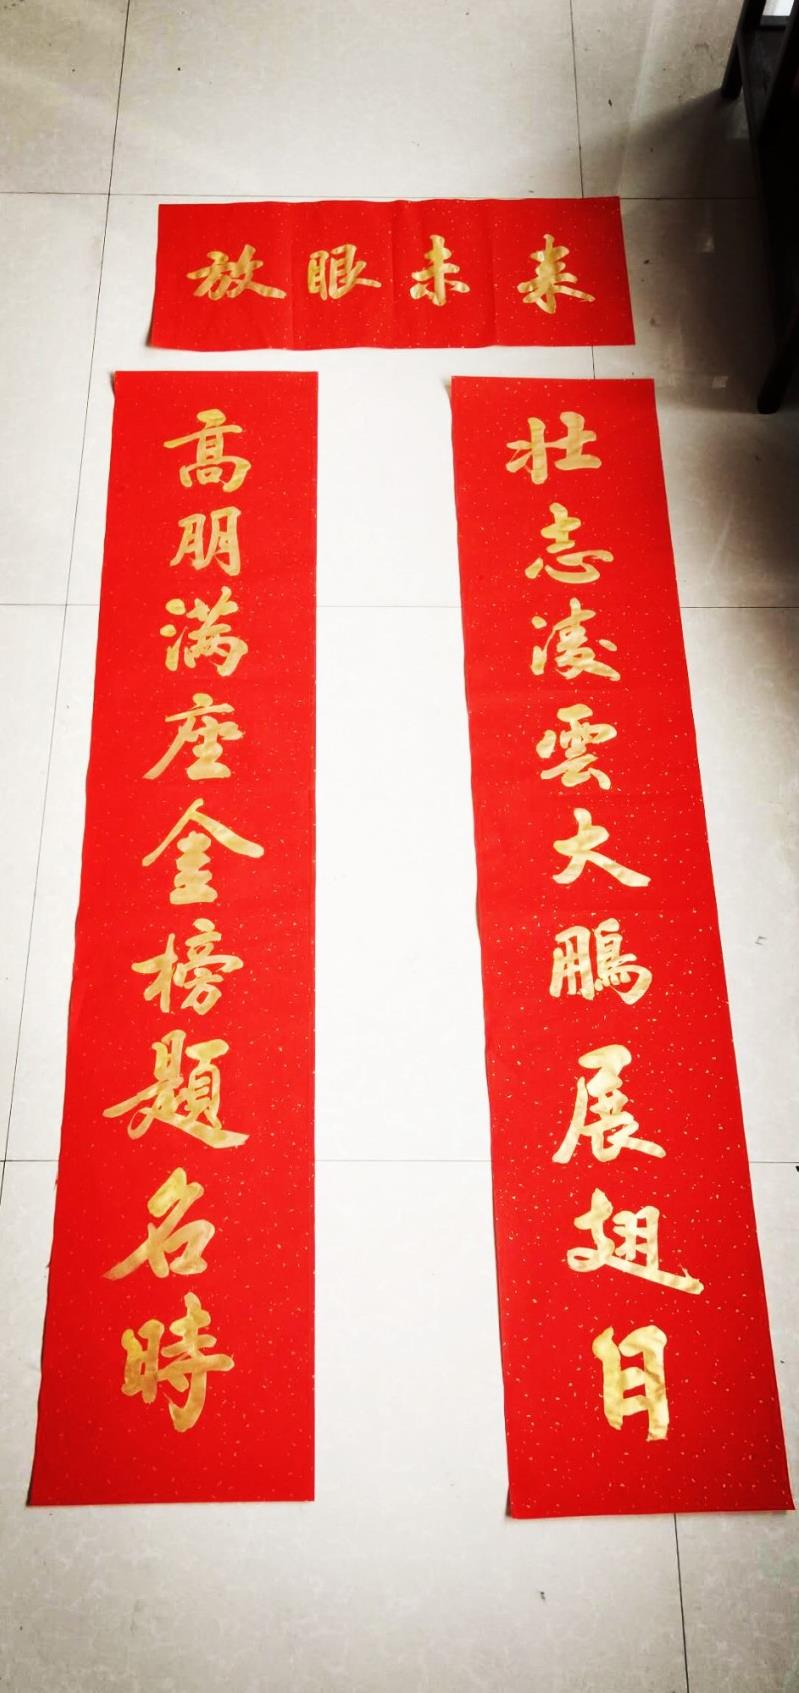 放眼未来
壮志凌雲大鵬展翅日
高朋满座金榜題名時